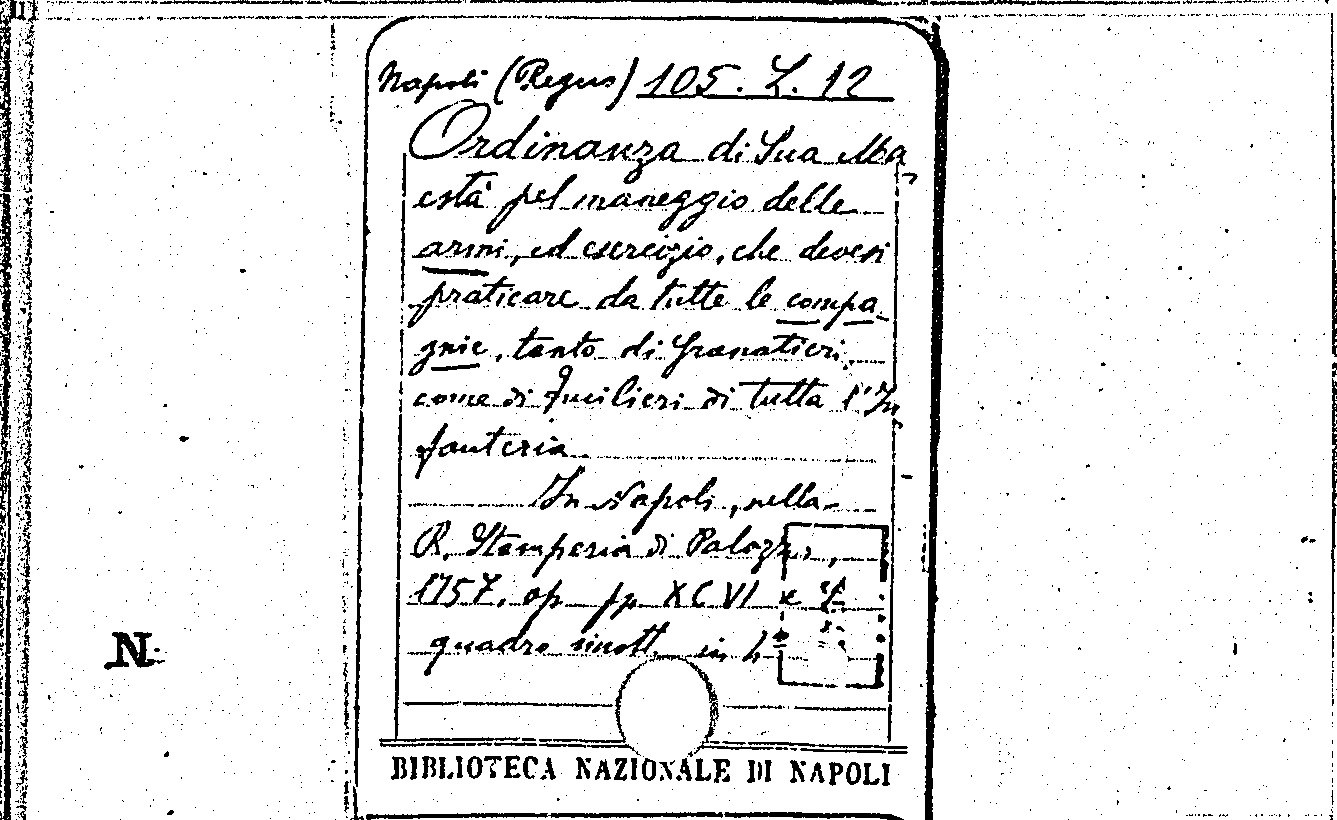 Napoli (Regno) 105. L. 12
Ordinanza di Sua Ma
està pel maneggio delle
armi, ed esercizio, che devesi
praticare da tutte le compa
gnie, tanto di Granatieri,
come di Fucilieri di tutta l'In
fanteria
In Napoli, nella
R. Stamperia di Palazzo,
1757. op pp XCVI e
quadro sinott. in
N.
BIBLIOTECA NAZIONALE DI NAPOLI